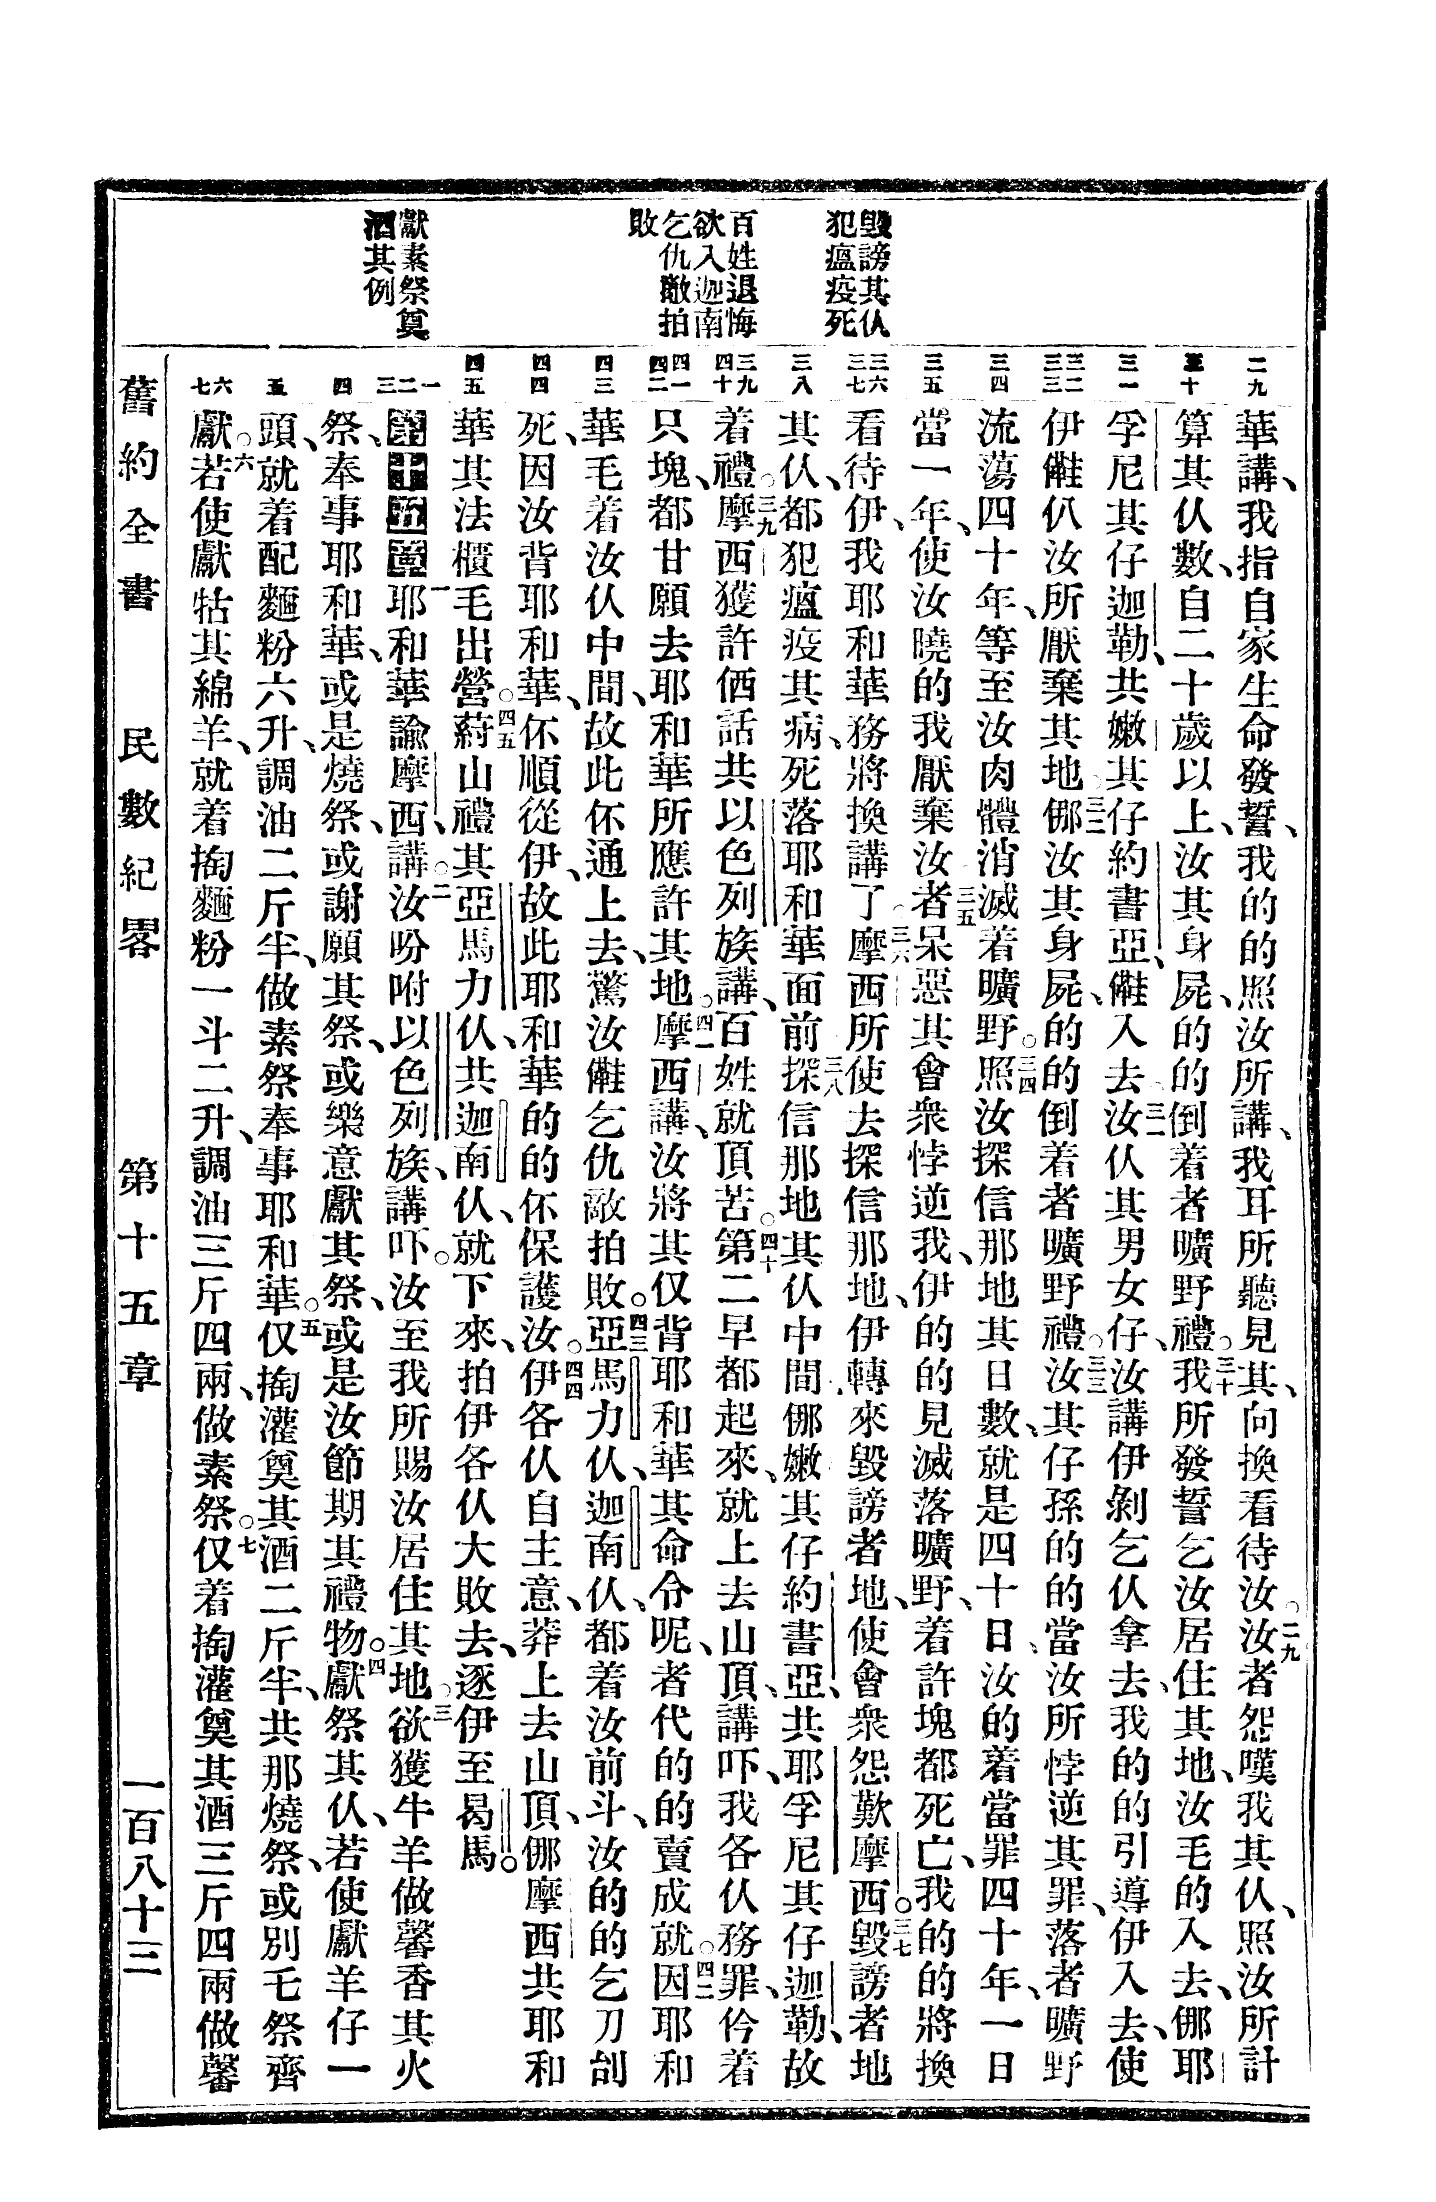 毀謗其仈
犯瘟疫死
百姓退悔
欲入迦南
乞仇敵拍
敗
獻素祭奠
酒其例
二九
三十
三一
三二 三三
三四
三五
三六 三七
三八
三九 四十
四一 四二
四三
四四
四五
一 二 三
四
五
六 七
華講、我指自家生命發誓、我的的照汝所講、我耳所聽見其、向換看待汝○二九汝者怨嘆我其仈、照汝所計
算其仈數、自二十歲以上、汝其身屍、的的倒着者曠野禮○三十我所發誓乞汝居住其地、汝毛的入去、㑚耶
孚尼其仔迦勒、共嫩其仔約書亞、㒕入去○三一汝仈其男女仔、汝講伊剝乞仈拿去、我的的引導伊入去、使
伊㒕仈汝所厭棄其地○三二㑚汝其身屍、的的倒着者曠野禮○三三汝其仔孫的的當汝所悖逆其罪、落者曠野
流蕩四十年、等至汝肉體消滅着曠野○三四照汝探信那地其日數、就是四十日、汝的着當罪四十年、一日
當一年、使汝曉的我厭棄汝者○三五呆惡其會衆悖逆我、伊的的見滅落曠野、着許塊都死亡、我的的將換
看待伊、我耶和華務將換講了○三六摩西所使去探信那地、伊轉來毀謗者地、使會衆怨歎摩西○三七毀謗者地
其仈、都犯瘟疫其病、死落耶和華面前○三八探信那地其仈中間、㑚嫩其仔約書亞、共耶孚尼其仔迦勒、故
着禮○三九摩西獲許洒話共以色列族講、百姓就頂苦○四十第二早都起來、就上去山頂、講吓、我各仈務罪、仱着
只塊、都甘願去耶和華所應許其地○四一摩西講、汝將其仅背耶和華其命令呢、者代的的賣成就○四二因耶和
華毛着汝仈中間、故此伓通上去、驚汝㒕乞仇敵拍敗○四三亞馬力仈、迦南仈、都着汝前斗、汝的的乞刀刣
死、因汝背耶和華、伓順從伊、故此耶和華的的伓保護汝○四四伊各仈自主意、莽上去山頂、㑚摩西共耶和
華其法櫃毛出營○四五蒔山禮其亞馬力仈、共迦南仈、就下來、拍伊各仈大敗去、逐伊至曷馬○
第十五章 一耶和華諭摩西講○二汝吩咐以色列族、講吓○汝至我所賜汝居住其地○三欲獲牛羊做馨香其火
祭、奉事耶和華、或是燒祭、或謝願其祭、或樂意獻其祭、或是汝節期其禮物○四獻祭其仈、若使獻羊仔一
頭、就着配麵粉六升、調油二斤半、做素祭奉事耶和華○五仅掏灌奠其酒二斤半、共那燒祭、或別乇祭齊
獻○六若使獻牯其綿羊、就着掏麵粉一斗二升、調油三斤四兩、做素祭○七仅着掏灌奠其酒三斤四兩做馨
舊約全書 民數紀畧 第十五章 一百八十三